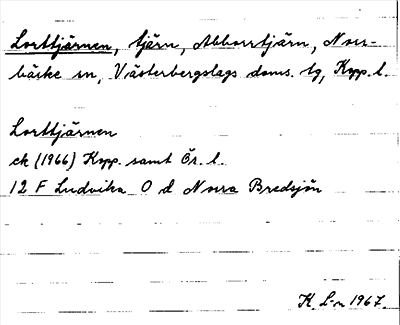 Lorttjärnen, tjärn, Abborrtjärn, Norr-
bärke sn, Västerbergslags doms. tg, Kopp. l.
Lorttjärnen
ek (1966) Kopp. samt Ör. l.
12 F Ludvika O d Norra Bredsjön
K. L-n 1967.